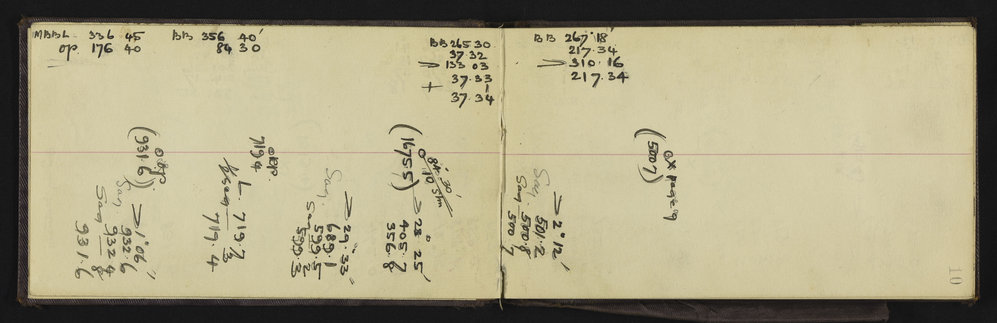 MBBL 336 45
Op. 176 40
BB 356 40'
84 30
BB 265 30
37.32
133 03
37.33
+ 37.34
BB 267° 18'
217.34
310.16
217.34
(931.6)
> 1° 06"
932.6
Say 932.4
Say 8
931.6
opp.
719.4
L. 719.7
3
719.4
> 29° 33"
Say 689.1
Say 599.5
2
599.3
(1675.5)
84° 30'
> 28° 25'
405.7
356.8
> 2° 12'
Say 501.2
Say 500.8
500 7
(500 7)
10